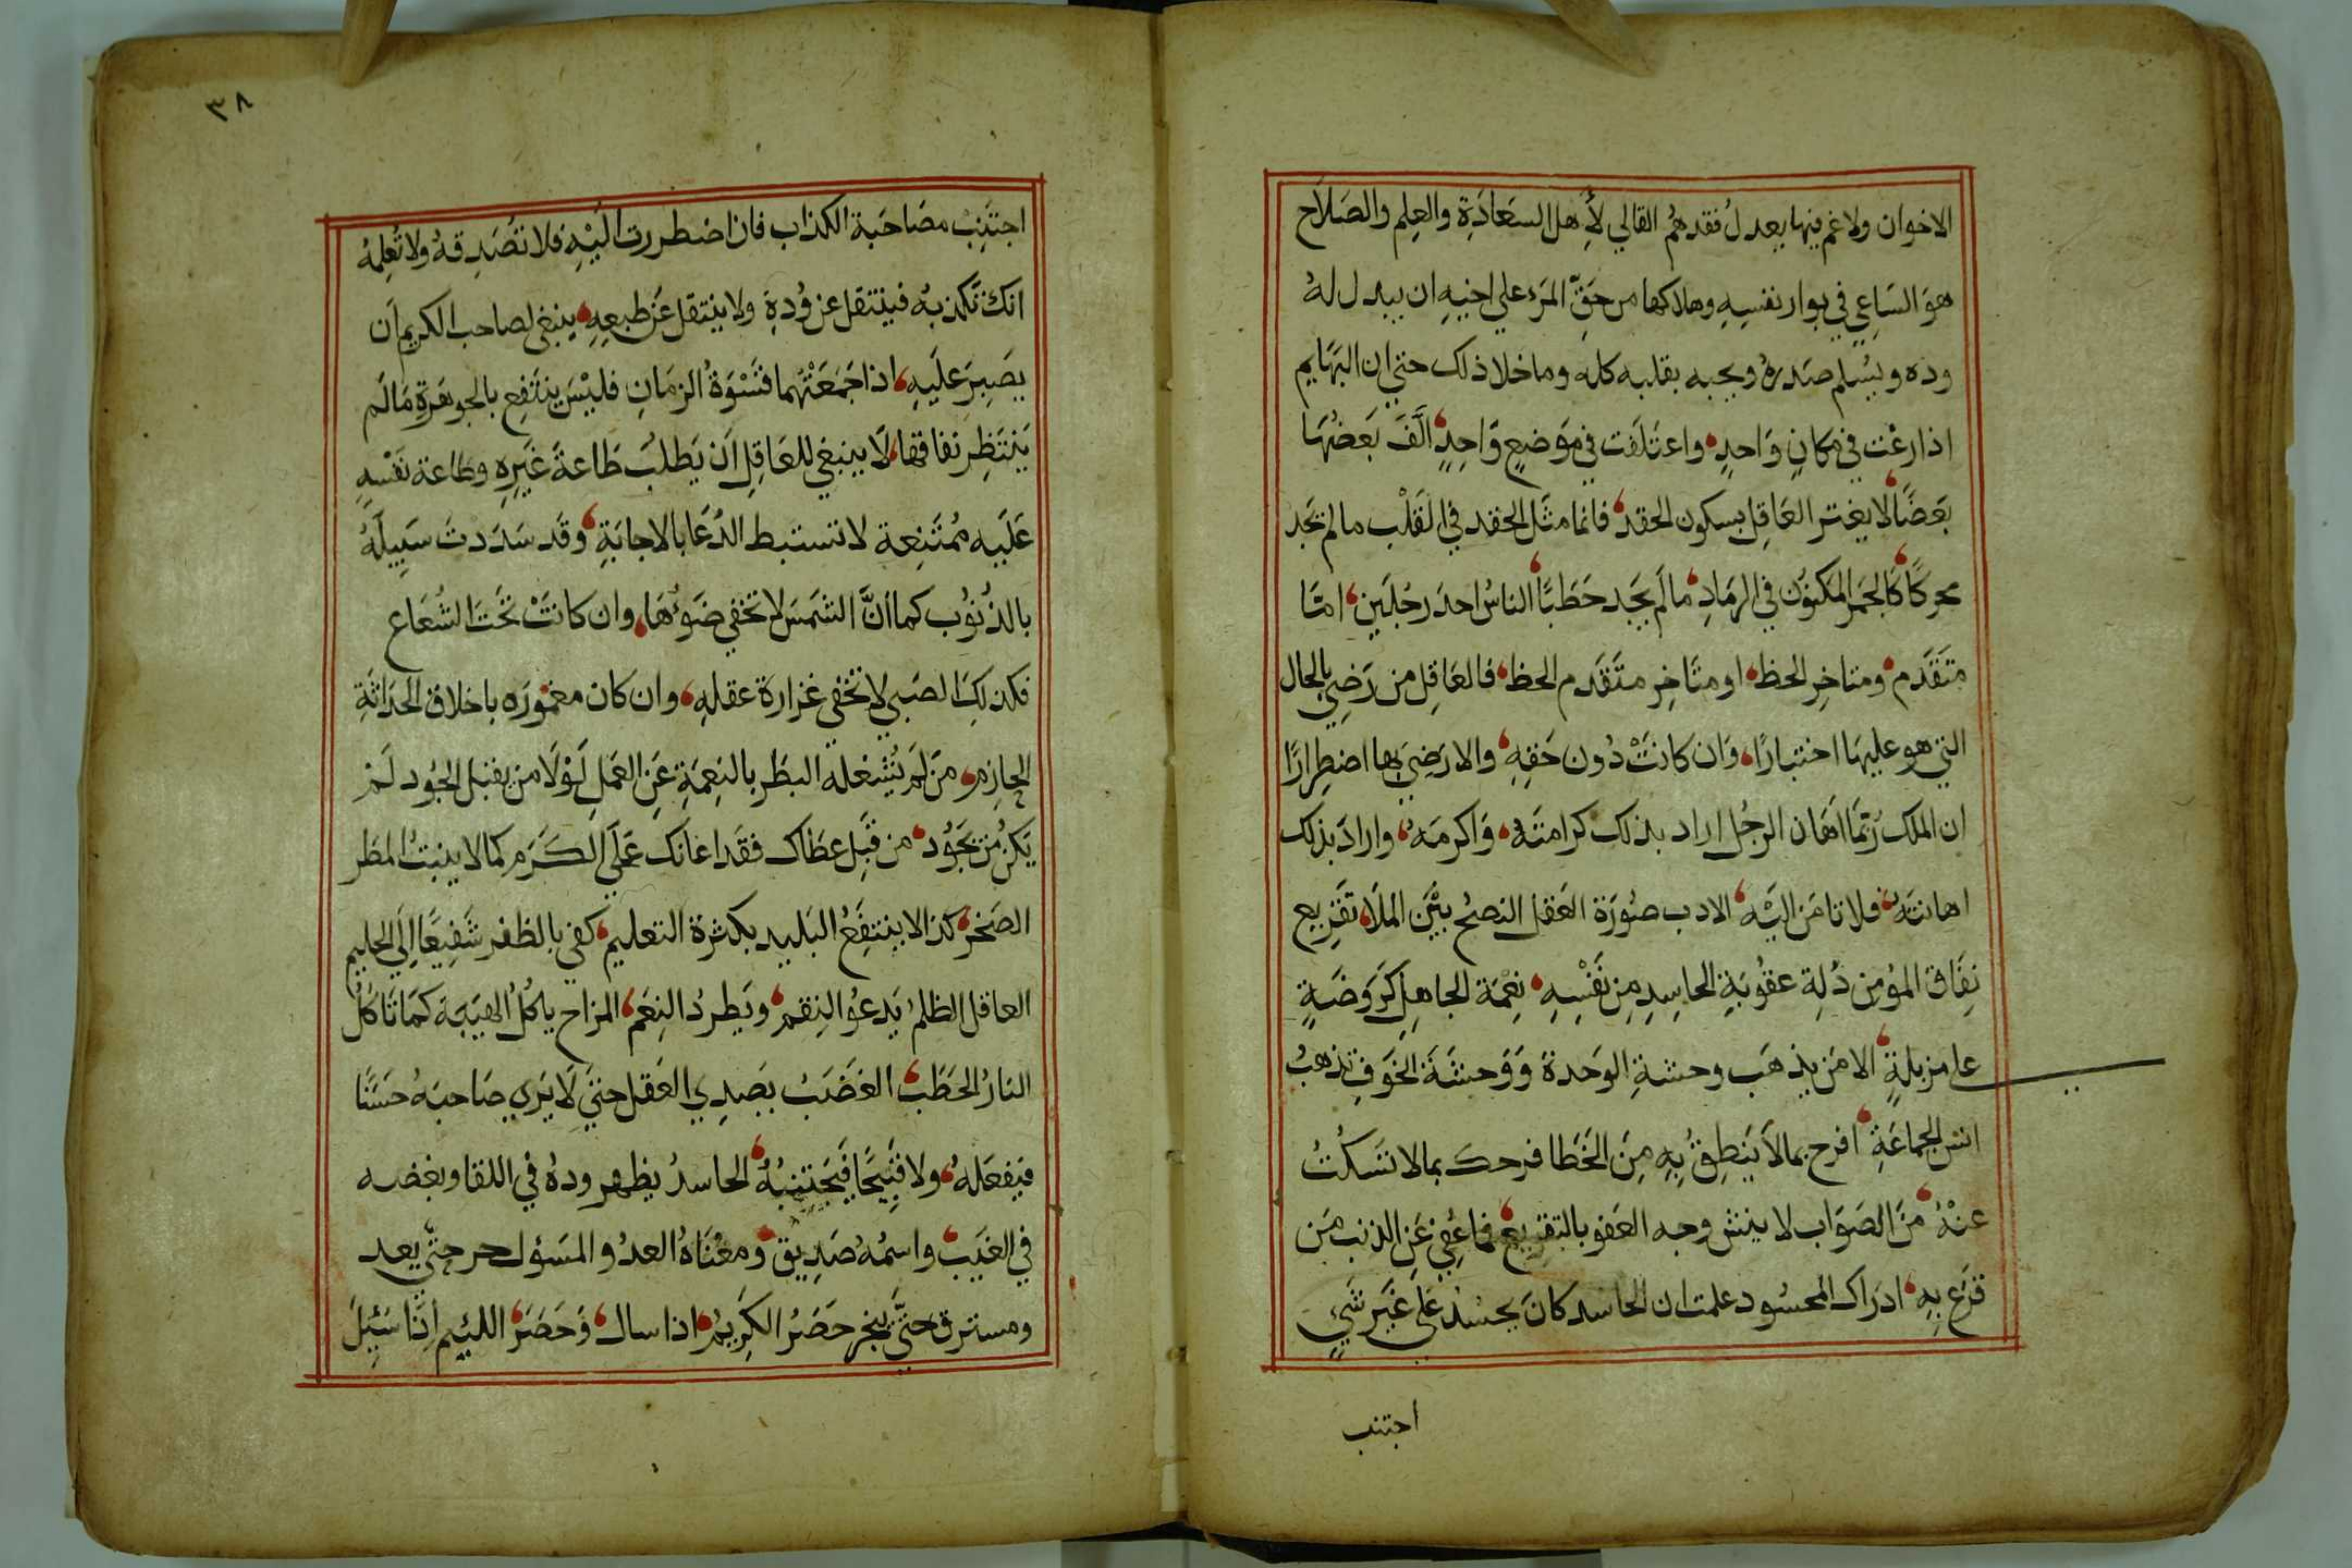 الاخوان ولا غم فيها يعدلُ فقدهمُ القالي لأهل السعَادَةِ والعِلم والصَلاَح
هوَ السَاعِي في بوار نفسِهِ وهلاكها من حَقِّ المَرءِ علي اخيهِ ان يبدل لهُ
وده ويسُلم صَدرهُ ويحبه بقلبه كله وما خلا ذلك حتي ان البهَايم
اذا رعْت في مكانٍ وَاحدٍ، واعتَلفَت في مَوضعٍ وَاحِدٍ، الَّفَ بَعضُهَا
بَعضًا، لا يغتر العَاقِل بسكون الحقد، فانما مثَل الحقد في القَلْب ما لم يَجد
محركًا، كَالجَمر المكنوُن في الرمَادِ، مالَم يَجد حَطَبًا، الناسُ احدَ رجُلَين، امتَا
متَقَدم، ومتاخِر الحظ، او متَاخِر متَقَدم الحظ، فالعَاقِل من رَضِيَ بالحال
التي هو عليهَا اختبارًا، وَان كانَتْ دُون حَقهِ، والا رَضِيَ بها اضطِرارًا
ان الملك رُبمَا اهَان الرجُل اراد بذلك كرامتَهُ، وَاكرمَهُ، وارادَ بذلك
اهانتَهُ، فلا تامَن اليَهُ، الادب صوُرَة العَقل النصحُ بيْنَ الملَا، تقَرِيع
نفَاق المؤمِن ذُلِة عقوُبَةِ الحاسِدِ مِن نَفْسِهِ، نِعْمَة الجاهِلِ كَرَوضَةٍ
على مزبلةٍ، الامَن يذهَب وحشةِ الوَحدة وَوَحشَةَ الخَوفِ تذهبُ
انسَ الجماعَةِ، افرح بمالاَ يَنطِقُ بِهِ مِنَ الخَطَا فرحك بمالا تَسكُتُ
عنْهُ، مَنَ الصَوَاب لا ينش وجه العَفو بالتقريع، فما عُفِيَ عَن الذنب مَن
قرَع بِهِ، ادرَاك المحسُود علمت ان الحاسد كانَ يحسُدُ عَلَى غَيَر شَيٍ
اجتنب
٣٨
اجتَنِبْ مصَاحَبة الكذاب فان اضطررت اليْهِ فلا تصُدِقهُ ولا تُعلِمُهُ
انك تكذبهُ فينتقل عن وُدهِ ولا ينتقل عَن طبعِهِ، ينبغي لصاحب الكريم أن
يصَبِرَ عَليَهِ، اذا جَمَعَتْهُما قسْوَةُ الزمَانِ فليْسَ ينتَفِع بالجوهَرةِ مَا لَم
يَنتَظِر نفاقها، لَا ينبغي للعَاقِلِ اَن يَطلُبَ طَاعةَ غَيرِه وطاعة نَفْسهِ
عَلَيه مُمتَنِعة لا تستبط الدُعَا بالاجابَةِ، وقَد سَدَدتَ سَبِيلَهُ
بالذُنوُب كما أنَّ الشَمَسَ لا تخفي ضَوئُهَا، وان كانَتْ تَحتَ الشُعَاع
فكذلكِ الصَبي لا تخفي غزارة عقلهِ، وان كان مغموُره باخلاق الحَدَاثَةِ
الجازم، مَن لَم يُشغله البطَر بالنِعمَةِ عَنِ العَمَلِ لَوْلَا من يقبَل الجُود لَم
يَكنُ مَن يَجوُد، من قَبِل عطَاك فقَد اعَانك عَلَي الكَرَم كما لا ينبتُ المطَر
الصَخر، كذا لا ينتفعُ البَليد بكثرة التعليم، كفي بالظفر شَفِيعًا اِلَي الحليم
العاقل الظلمُ يَدعوُ النِقم، ويَطردُ النِعَم، المزاح ياكُلُ الهَيَبة كمَا تَاكُلُ
النارُ الحَطَبَ، الغَضَبُ بصَدِي العَقل حتيَ لَا يَري صَاحبَهُ حسَنًا
فيَفعَلهُ، ولا قبيَحًا فيَجتنبهُ، الحاسدُ يظهر ودهُ في اللقا وبغضه
في الغيَب، واسمُهُ صَدِيق، ومعْنَاهُ العدُو المسَؤل حر حتَّي يعد
ومسترق حتَّي ينجز حَصَرُ الكرِيمُ، اذا سال، وَحَصَر، اللئيم اِذَا سَئِلَ